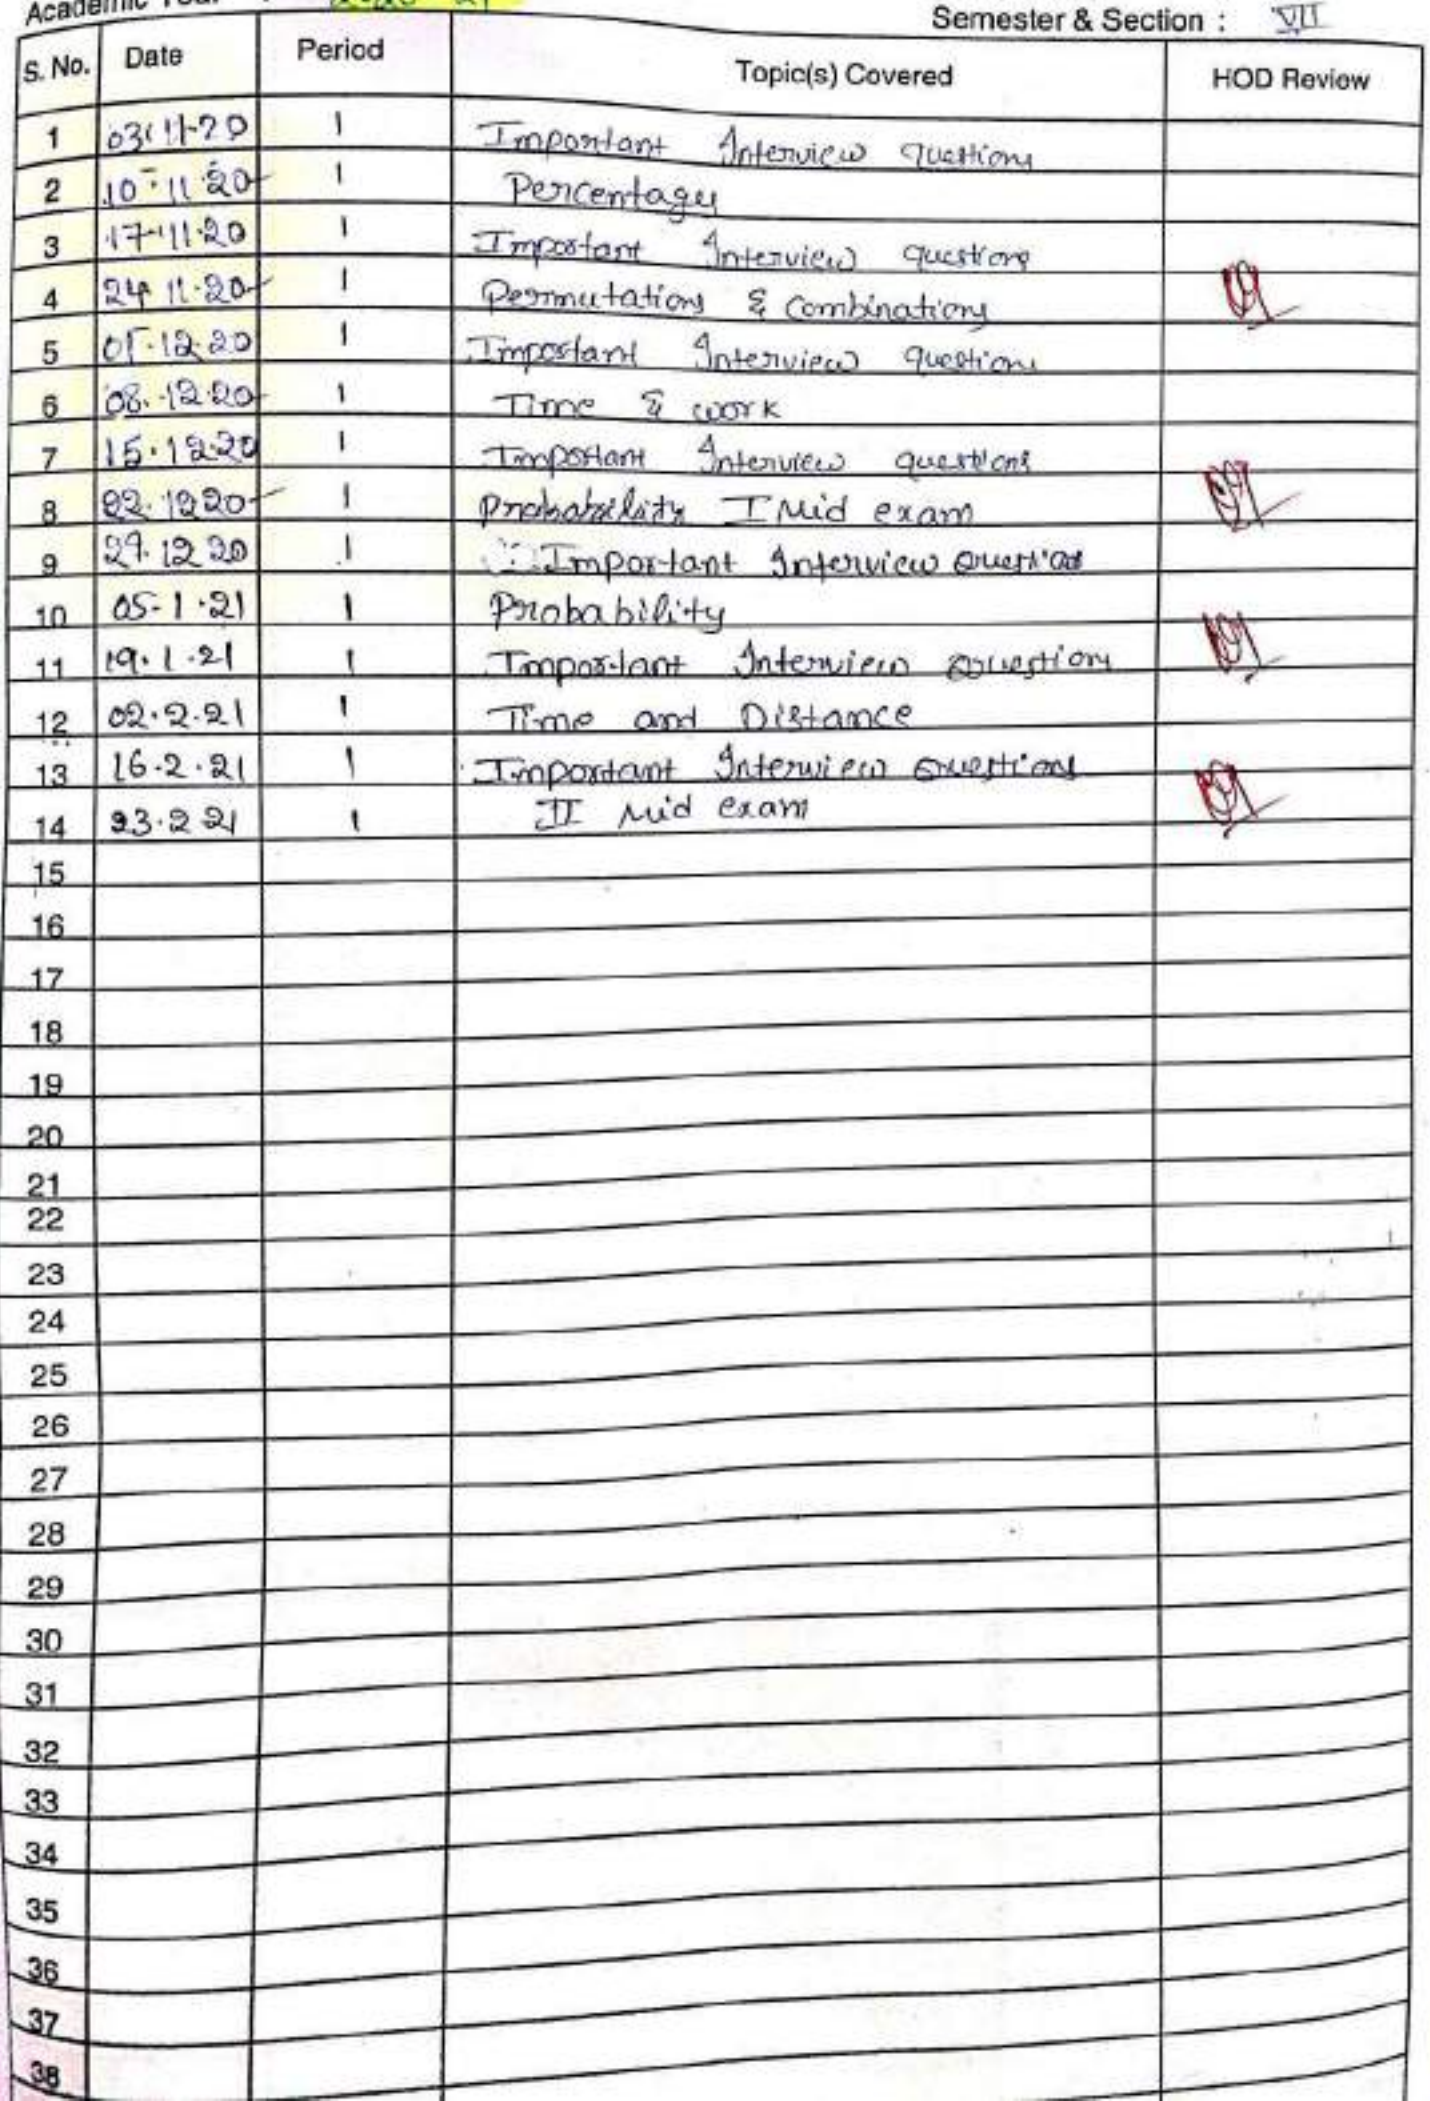 Academic Year : 2020-21
Semester & Section : VII
S. No. Date Period Topic(s) Covered HOD Review
1 03-11-20 1 Important Interview questions
2 10-11-20 1 Percentages
3 17-11-20 1 Important Interview questions
4 24-11-20 1 Permutations & Combinations
5 01-12-20 1 Important Interview questions
6 08-12-20 1 Time & work
7 15.12.20 1 Important Interview questions
8 22.12.20 1 Probability I Mid exam
9 29.12.20 1 Important Interview Questions
10 05-1-21 1 Probability
11 19.1.21 1 Important Interview Questions
12 02.2.21 1 Time and Distance
13 16.2.21 1 Important Interview Questions
14 23.2.21 1 II Mid exam
15
16
17
18
19
20
21
22
23
24
25
26
27
28
29
30
31
32
33
34
35
36
37
38